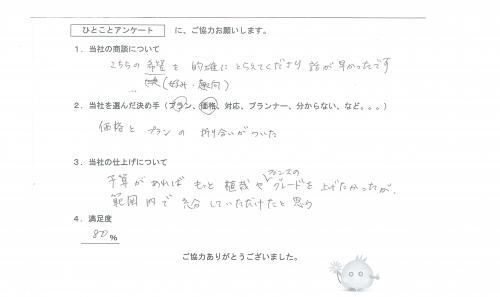 ひとことアンケート に、ご協力お願いします。
1．当社の商談について
こちらの希望を的確にとらえてくださり話が早かったです
(好み・趣向)
2．当社を選んだ決め手（プラン、価格、対応、プランナー、分からない、など。。。）
価格とプランの折り合いがついた
3．当社の仕上げについて
フェンスの
予算があればもっと植栽やグレードを上げたかったが、
範囲内で充分していただけたと思う
4．満足度
80％
ご協力ありがとうございました。